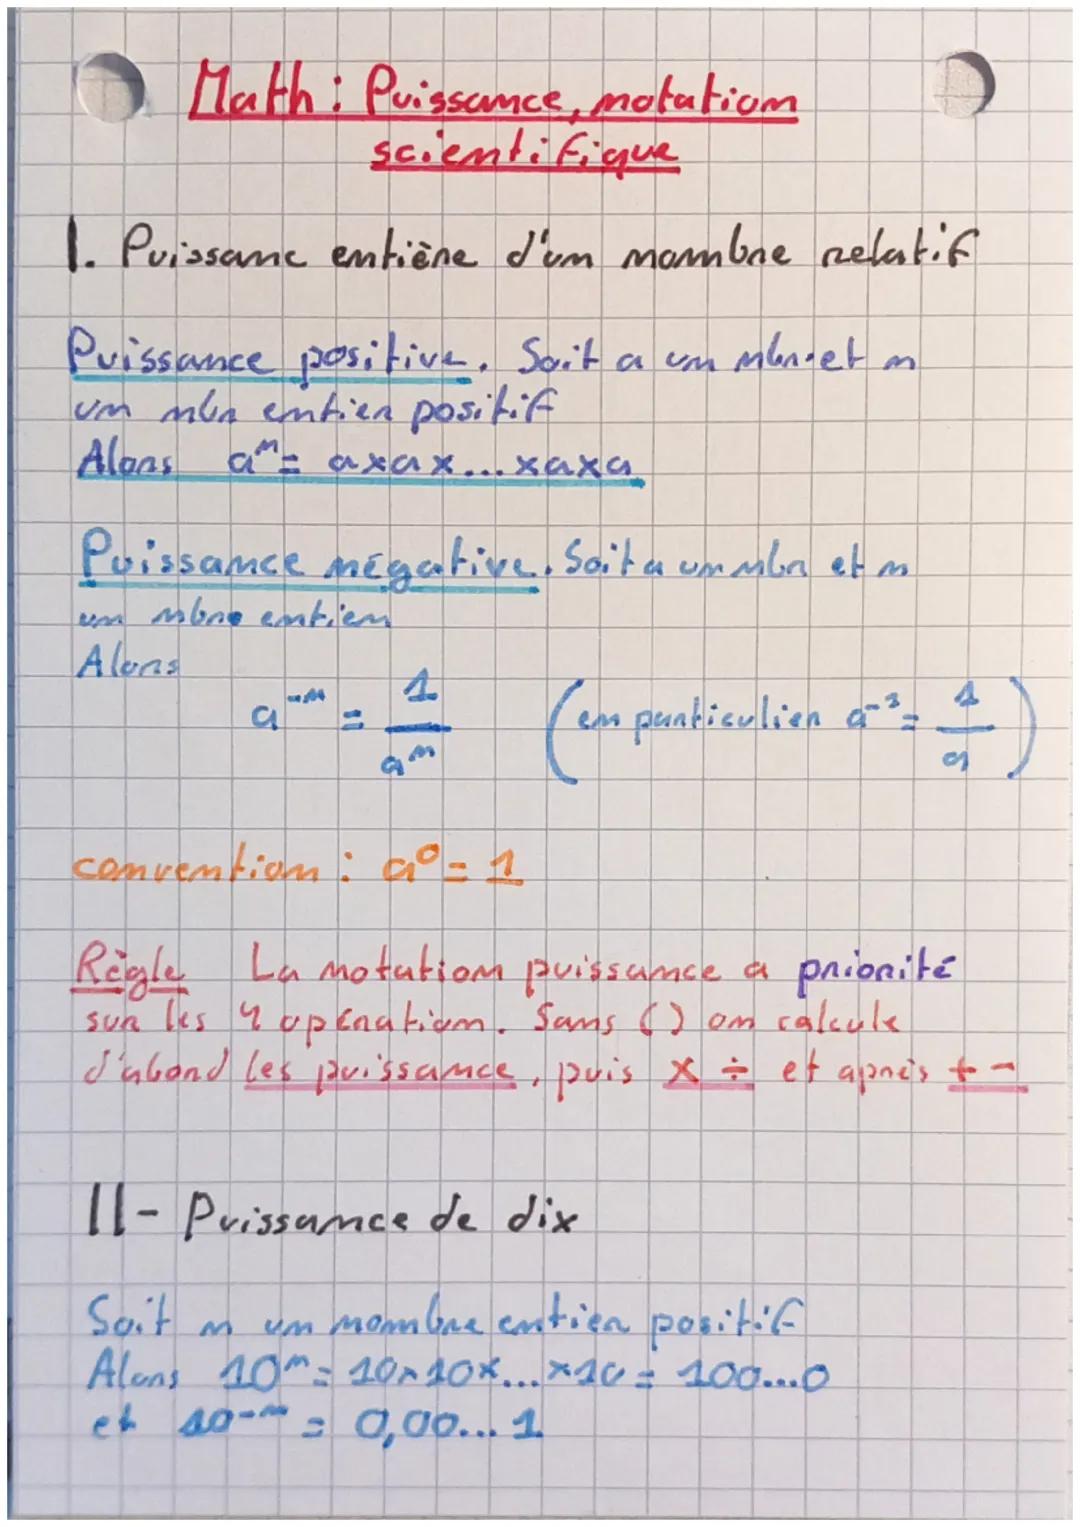 Math : Puissance, notation
scientifique
I. Puissanc entière d'un nombre relatif
Puissance positive. Soit a un nbr et n
un nbr entier positif
Alors aⁿ = axax...xaxa
Puissance négative. Soit a un nbr et n
un nbre entier
Alors
a⁻ⁿ = 1/aⁿ (en particulier a⁻¹ = 1/a)
convention : a⁰ = 1
Règle La notation puissance a priorité
sur les 4 opération. Sans () on calcule
d'abord les puissance, puis x ÷ et après + -
II- Puissance de dix
Soit n un nombre entier positif
Alors 10ⁿ = 10x10x...x10 = 100...0
et 10⁻ⁿ = 0,00...1